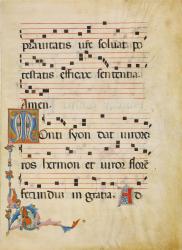 pravitatis nr̃e soluat po
testatis effitax sententia.
Amen.
Monti syon dat uirore
ros hermon et uiror flore
fecundus in gratia. Ad